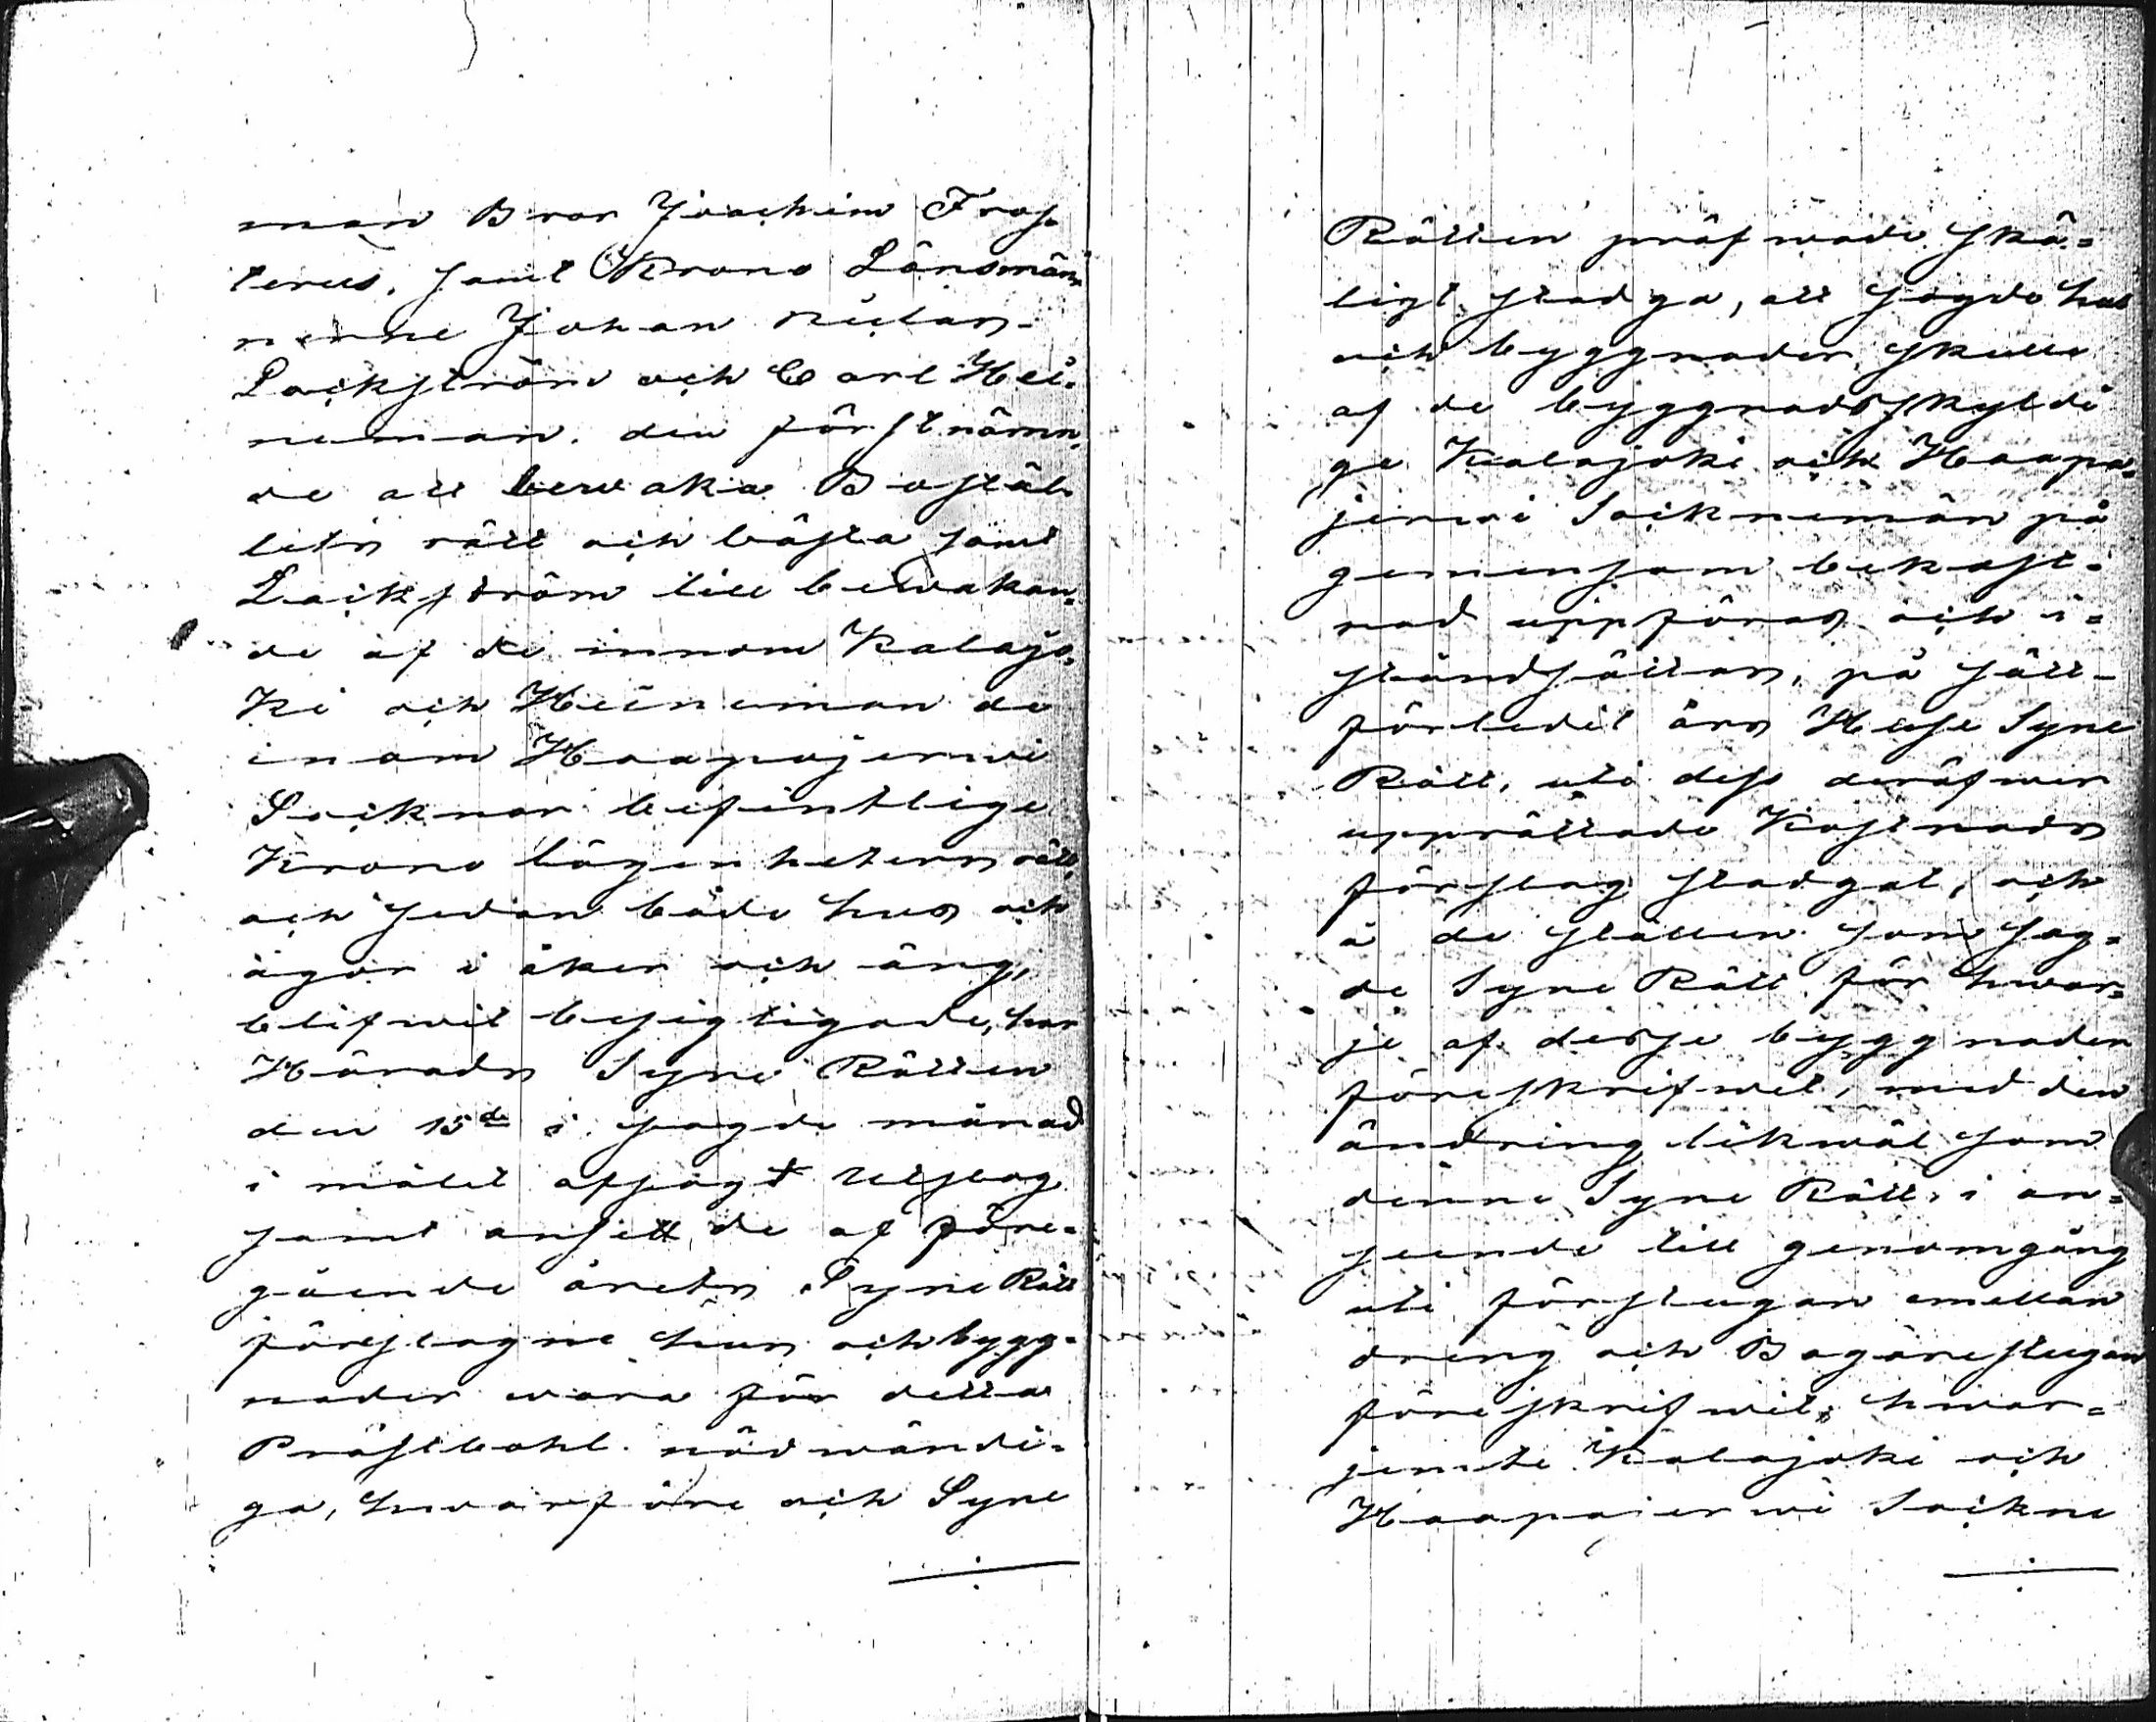 man Bror Joachim Fros
terus, samt Krono Länsmän
nerne Johan
Lackström och Carl Hei-
neman, den förstnämn-
de att bewaka Bostäl
lets rätt och bästa samt
Lackström till bewakan-
de af de innom Kalajo-
ki och Heineman de
inom Haapajerwi
Socknar befintlige
Krono lägenheters rätt,
och sedan både hus och
ägor i åker och äng,
blifwit besigtigade, har
Härads Syne Rätten
den 15de i sagde månad
i målet afsagt Utslag
samt ansett de af före-
gående årets Syne Rätt
föreslagne hus och bygg-
nader wara för detta
Prästbohl nödwändi-
ga, hwarföre och Syne
Rätten pröfwade skä-
ligt stadga, att sagde hus
och byggnader skulle
af de byggnadsskyldi
ge Kalajoki och Haapa-
jerwi Socknemän på
gemensam bekost-
nad uppföras och i-
ståndsättas, på sätt
förledit års Huse Syne
Rätt, uti dess deröfwer
upprättade Kostnads
förslag stadgat, och
å de ställen som sag-
de Syne Rätt för hwar-
je af desse byggnader
föreskrifwit, med den
ändring likwäl som
denne Syne Rätt i an-
seende till genomgång
uti förstugan emellan
dräng och Bagarestugan
föreskrifwit, hwar-
jemte Kalajoki och
Haapajerwi Sockne